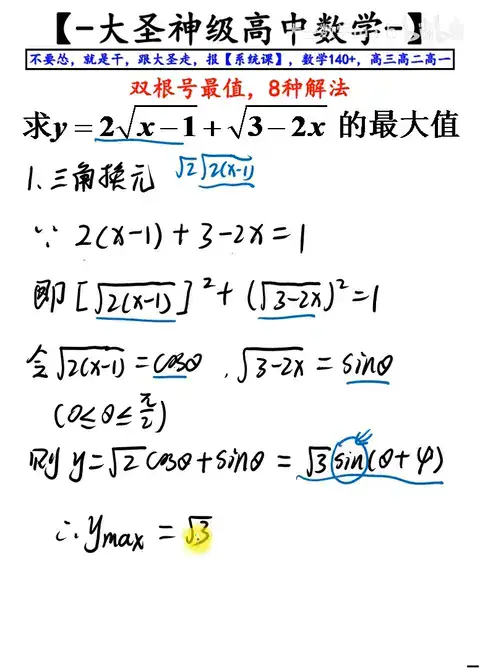 【-大圣神级高中数学-】
不要怂，就是干，跟大圣走，报【系统课】，数学140+，高三高二高一
双根号最值，8种解法
求y=2√(x-1)+√(3-2x) 的最大值
1.三角换元 √2√(2(x-1))
∵ 2(x-1)+3-2x=1
即[√(2(x-1))]²+(√(3-2x))²=1
令√(2(x-1))=cosθ，√(3-2x)=sinθ
(0≤θ≤π/2)
则y=√2cosθ+sinθ=√3sin(θ+φ)
∴y_max=√3